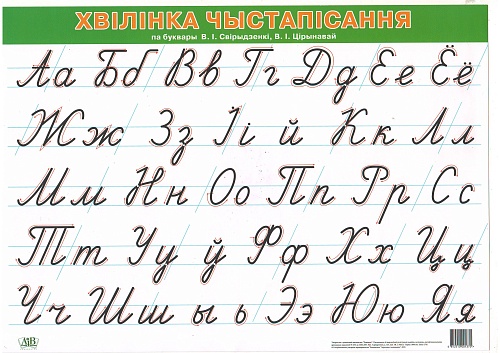 ХВІЛІНКА ЧЫСТАПІСАННЯ
па буквары В. І. Свірыдзенкі, В. І. Цірынавай
Аа Бб Вв Гг Дд Ее Ёё
Жж Зз Іі й Кк Лл
Мм Нн Оо Пп Рр Сс
Тт Уу ў Фф Хх Цц
Чч Шш ы ь Ээ Юю Яя